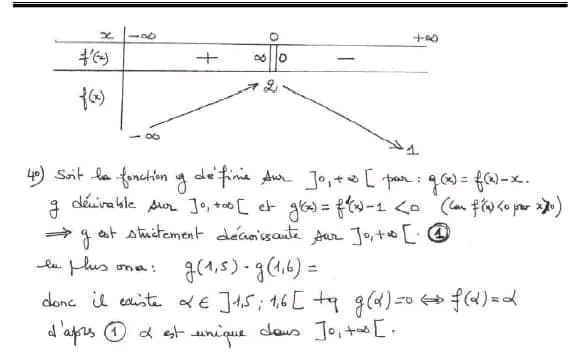 x -∞ 0 +∞
f'(x) + ∞ || 0 -
f(x) 2
-∞ 1
4°) Soit la fonction g définie sur ]0,+∞[ par : g(x) = f(x)-x.
g dérivable sur ]0,+∞[ et g'(x) = f'(x)-1 <0 (Car f'(x)<0 pour x>0)
⇒ g est strictement décroissante sur ]0,+∞[. ①
en plus on a : g(1,5) · g(1,6) =
donc il existe α ∈ ]1,5 ; 1,6[ tq g(α)=0 ⇔ f(α)=α
d'aprs ① α est unique dans ]0,+∞[.